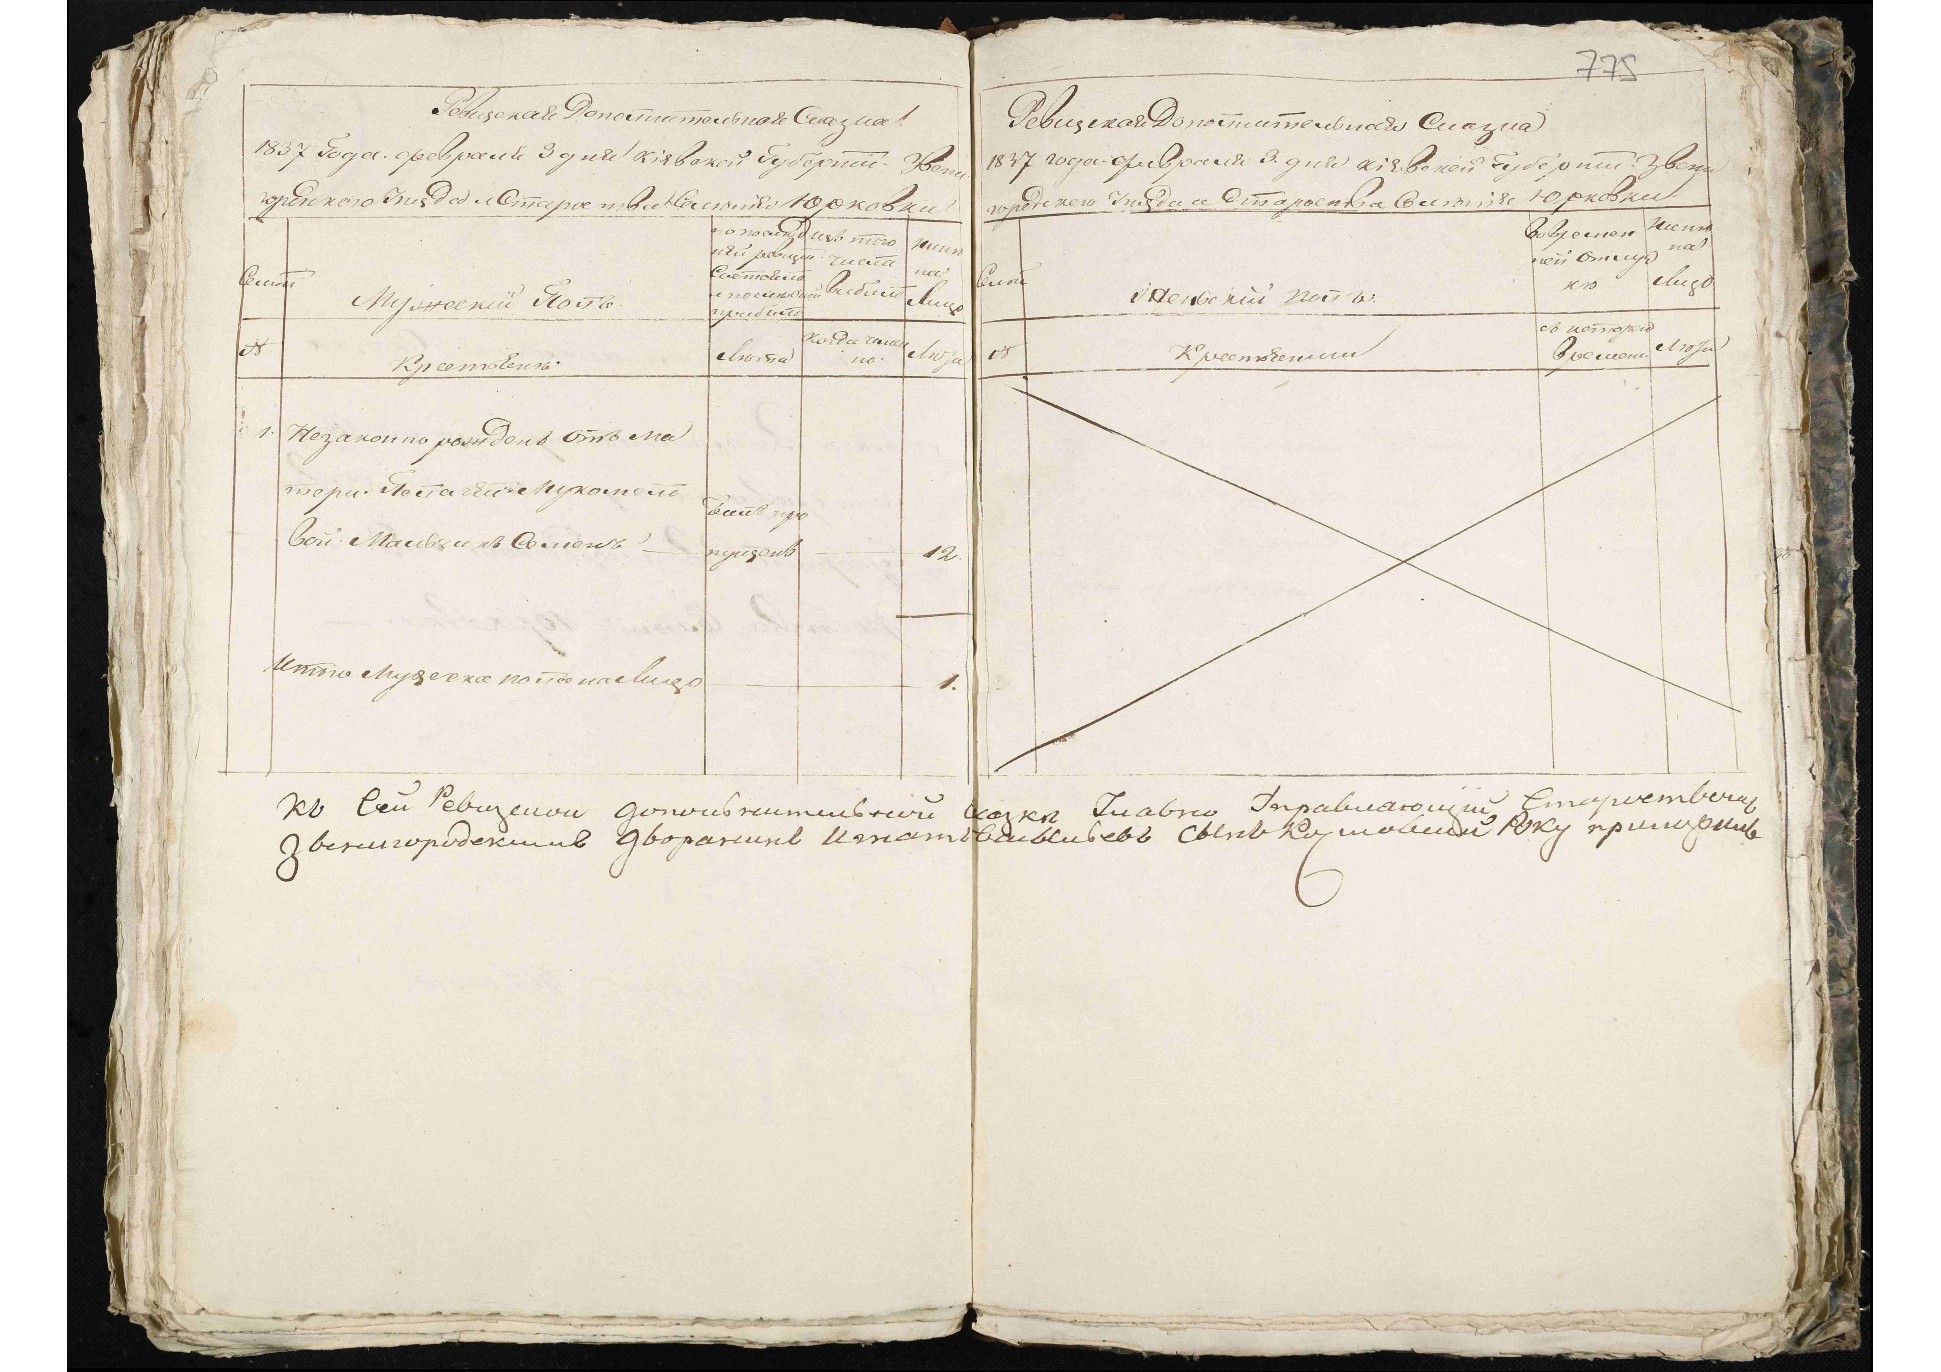 775
Ревизская Дополнительная Сказка
1837 Года февраля 3 дня Кіевской Губерніи Звени
городского Уезда и Староства Селенія Юрковки
Семьи
Мужеский Полъ
по последней ревизіи состояло и после оной прибыло
изъ того числа выбыло
Ныне на Лицо
№
Крестьянъ
Лета
Когда имянно
Лета
1. Незаконно рожденъ отъ Ма
тери Пелагеи Мукомело
вой Мальчикъ Семенъ
былъ про
пущенъ
12
Итого Мужеска пола на Лицо 1.
Ревизская Дополнительная Сказка
1837 года февраля 3 дня Кіевской Губерніи Звени
городского Уезда и Староства Селенія Юрковки
Семьи
Женский полъ
Во времен
ной отлуч
ке
Ныне
на
Лицо
№
Крестьянки
съ котораго
времени
Лета
Къ Сей Ревизской дополнительной сказки Главно Управляющий Староством
Звенигородскимъ дворянинъ Игнатъ Васильевъ Сынъ руку приложилъ